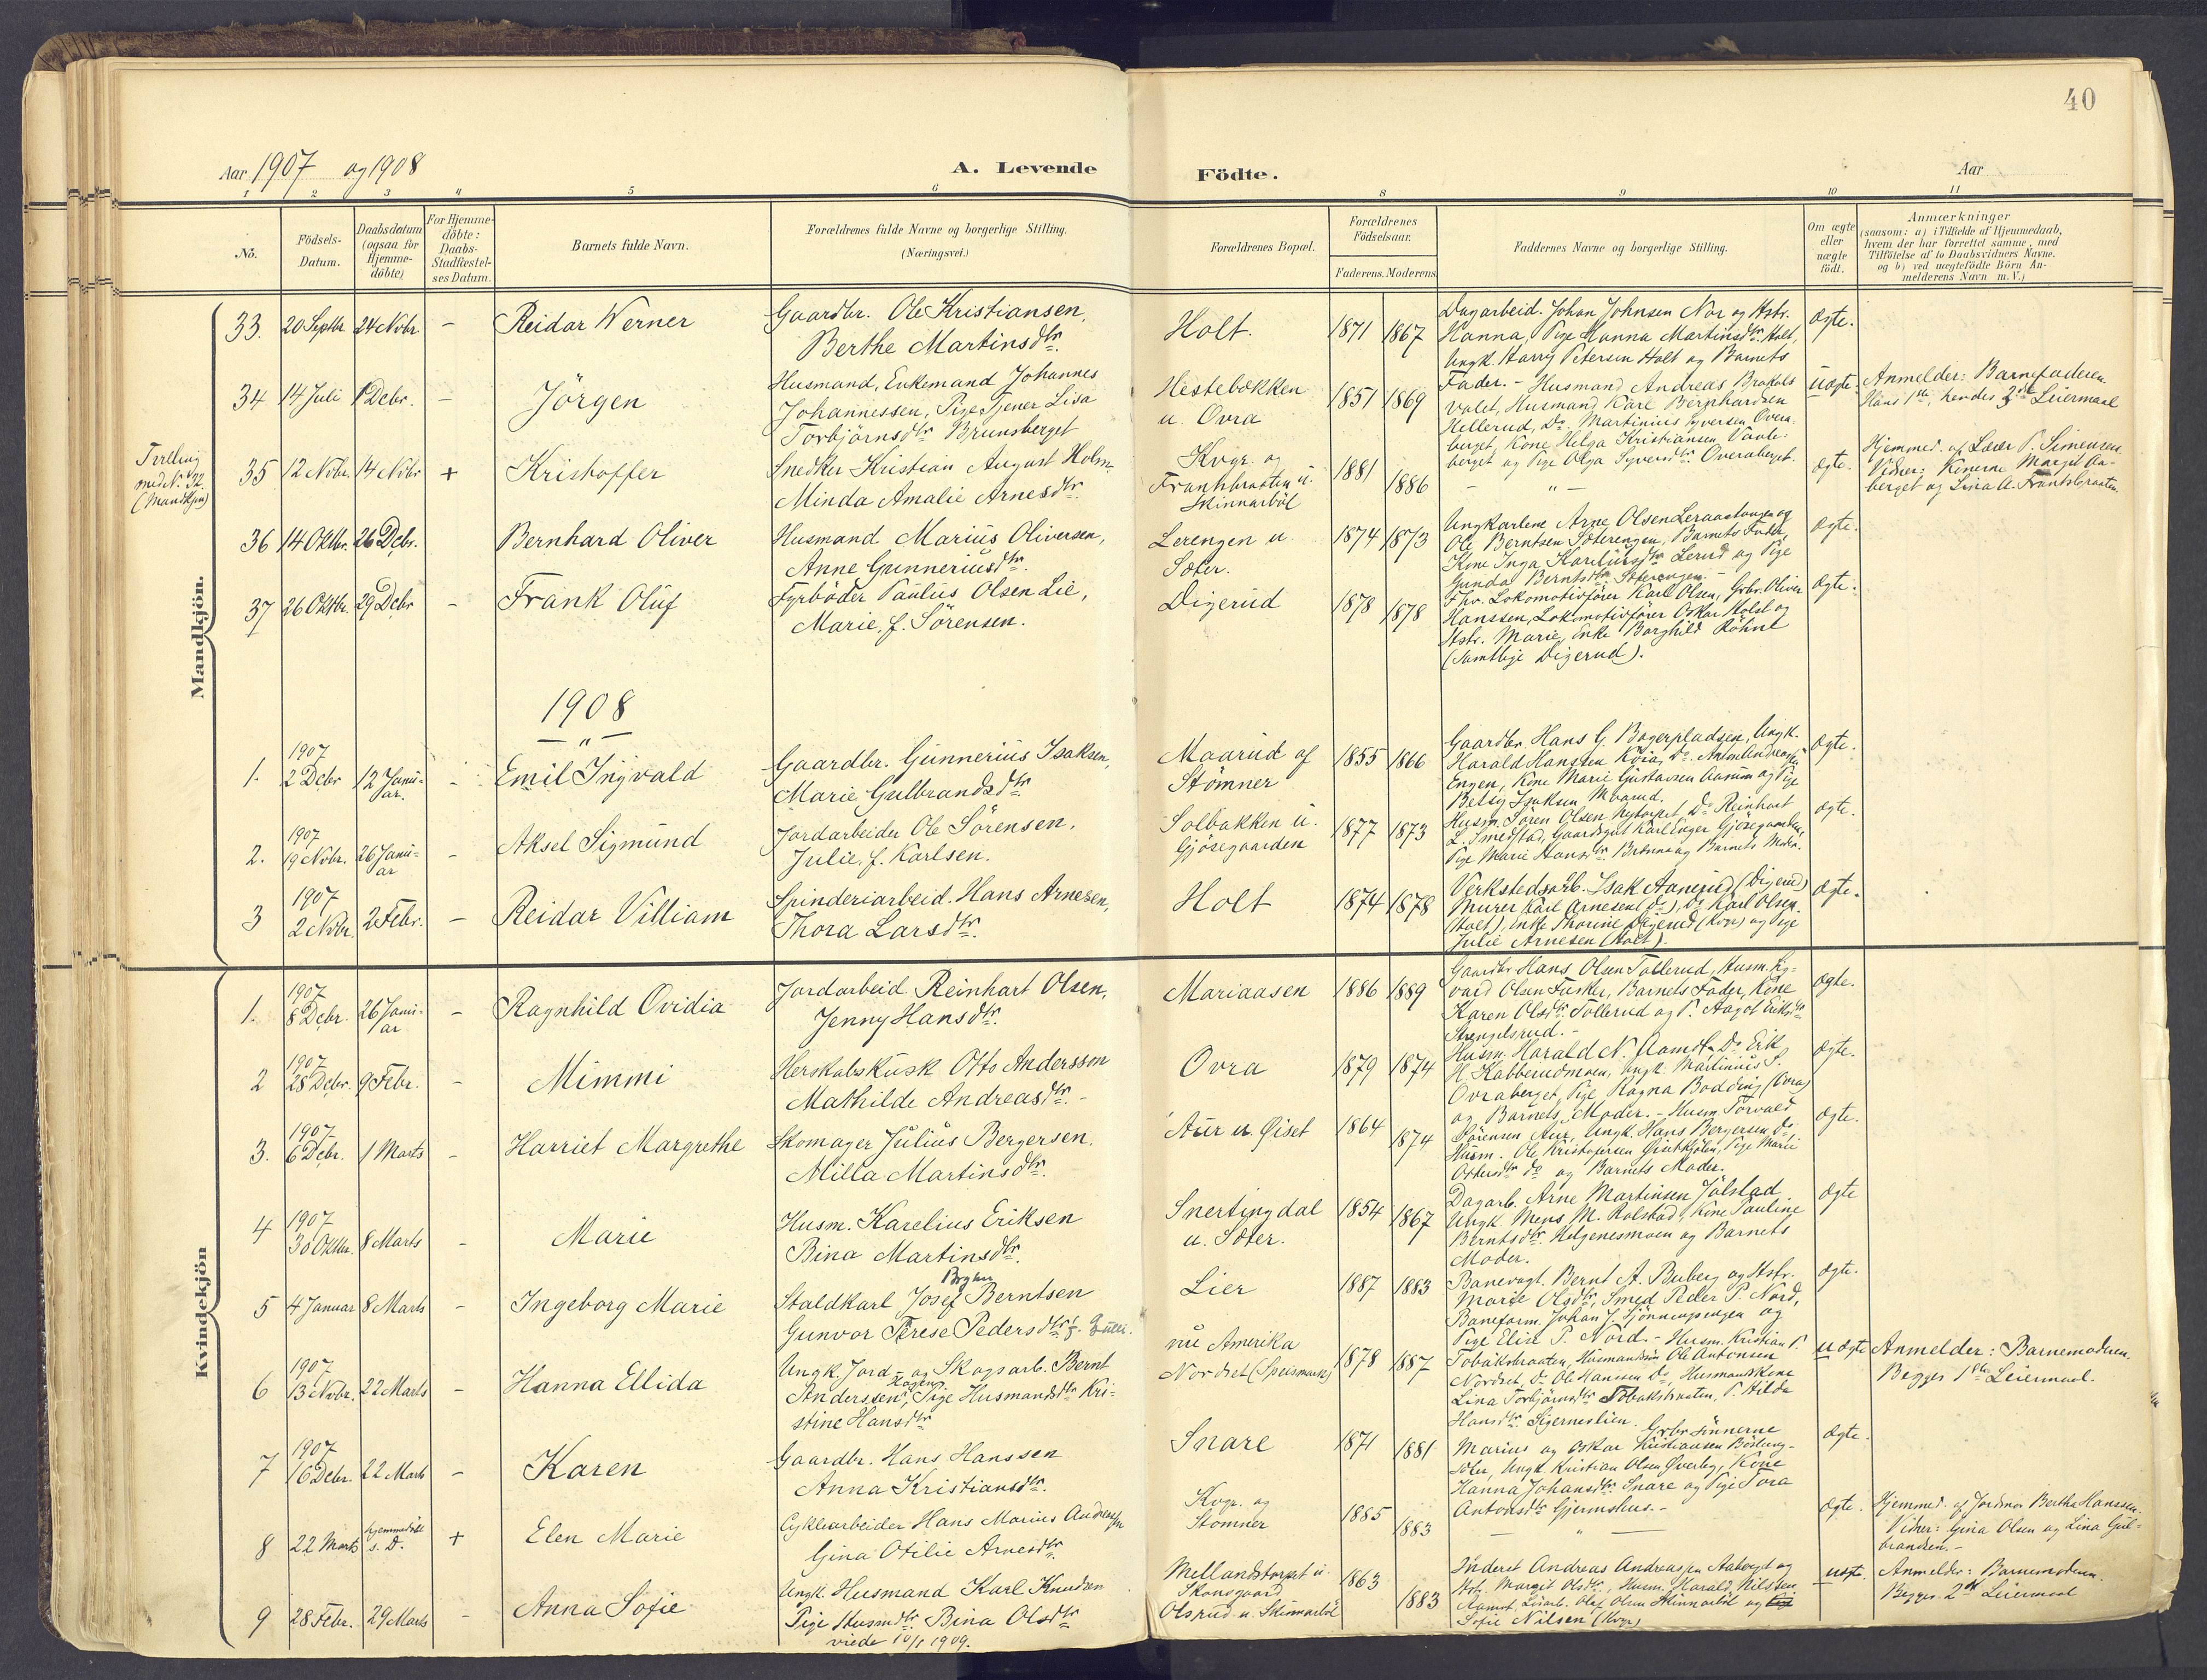 40
Aar 1907 og 1908
A. Levende Födte.
Aar
1 2 3 4 5 6 8 9 10 11
No.
Födsels-Datum.
Daabsdatum (ogsaa for Hjemme-döbte)
For Hjemme-döbte: Daabs-Stadfestel-ses Datum.
Barnets fulde Navn.
Forældrenes fulde Navne og borgerlige Stilling.
(Næringsvei.)
Forældrenes Bopæl.
Forældrenes Födselsaar.
Faderens. Moderens
Faddernes Navne og borgerlige Stilling.
Om ægte eller uægte födt.
Anmærkninger
(saasom: a) i Tilfælde af Hjemmedaab,
hvem der har forrettet samme, med
Tilföielse af to Daabsvidners Navne.
og b) ved uægtefödte Börn An-
melderens Navn m.V.)
Mandkjön.
33. 20 Septbr. 24 Novbr. - Reidar Werner
Gaardbr. Ole Kristiansen,
Berthe Martinsdtr.
Holt. 1871 1867
Dagarbeid. Johan Johnsen Nor og Hstr.
Hanna, Pige Hanna Martinsdtr. Holt,
Ungk. Harry Petersen Holt og Barnets
Fader. -
Ægte.
34 14 Juli 1 Debr. - Jörgen
Husmand, Enkemand Johannes
Johannessen, Pige Tjener Lisa
Torbjörnsdtr Brunsberget
Hestebækken
u. Ovra
1851 1869
Husmand Andreas
Husmand Karl Bernhardsen
Hellerud, Do. Martinius Syversen Overa-
berget, Kone Helga Kristiansen
berget og Pige Olga Syversdtr. Overaberget.
Uægte.
Anmelder: Barnefaderen.
Hans 1ste, hendes 2det Leiermaal
Tvilling
med N. 32
(Mandkjön)
35 12 Novbr. 14 Novbr + Kristoffer
Snedker Kristian August Holm,
Minda Amalie Arnesdtr.
Kvgr. og
u.
Skinnarböl
1881 1886
- " -
Ægte.
Hjemmed. af Læer P. Simensen.
Vidner: Konerne Margit Aa-
berget og Lina A.
36 14 Oktbr. 26 Debr. Bernhard Oliver
Husmand Marius Oliversen,
Anne Gunneriusdtr.
Lerengen u.
Sæter.
1874 1873
Ungkarlene Arne Olsen og
Ole Berntsen Sæterengen, Barnets Fader,
Kone Inga Karlsdtr Lerud og Pige
Gunda Berntsdtr. Sæterengen. -
Ægte.
37 26 Oktbr. 29 Debr - Frank Oluf
Fyrböder Paulus Olsen Lie,
Marie, f. Sörensen.
Digerud 1878 1878
Fhv. Lokomotivförer Karl Olsen, Grbr. Oliver
Hanssen, Lokomotivförer Oskar Holst og
Hstr. Marie, Enke Borghild Röhnt
(samtlige Digerud).
Ægte.
1908
- " -
1. 1907 2 Debr 12 Janu-ar. - Emil Ingvald
Gaardbr. Gunnerius Isaksen,
Marie Gulbrandsdtr
Maarud af
Stömner
1855 1866
Gaardbr. Hans G. Bogerpladsen, Ungk.
Harald Hansen
Engen, Kone Marie Gustavsen Aamum og Pige
Betsy Isaksen Maarud.
Ægte.
2. 1907 19 Novbr. 26 Janu-ar - Aksel Sigmund
Jordarbeider Ole Sörensen,
Julie, f. Karlsen.
Solbakken u.
Gjösegaarden
1877 1873
Husm. Sören Olsen Nytorpet, Do Reinhart
L. Smedstad, Gaardsgut Karl Enger Gjösegaarden,
Pige Marie Hansdtr. Brænna og Barnets Moder.
Ægte.
3 1907 2 Novbr. 2 Febr. - Reidar Villiam
Spinderiarbeid. Hans Arnesen,
Thora Larsdtr.
Holt 1874 1878
Verkstedsarb. Isak Aanerud (Digerud)
Murer Karl Arnesen (do), Do Karl Olsen
(Holt), Enke Thorine Digerud (Kvgr) og Pige
Julie Arnesen (Holt).
Ægte.
Kvindekjön
1. 1907 8 Debr. 26 Janu-ar - Ragnhild Ovidia
Jordarbeid. Reinhart Olsen,
Jenny Hansdtr.
Mariaasen 1886 1889
Gaardbr Hans Olsen Tollerud, Husm. Ed-
vard Olsen Fasker, Barnets Fader, Kone
Karen Olsdtr. Tollerud og P. Aagot Eriksdtr
Strengelsrud. -
Ægte.
2 1907 28 Debr. 9 Febr. - Mimmi
Herskabskusk Otto Andersson
Mathilde Andreasdtr. -
Ovra 1879 1874
Husm. Harald N. Aamot, Do Erik
H. Kabberudmoen, Ungk. Martinius S.
Ovraberget, Pige Ragna Bodding (Ovra)
og Barnets Moder. -
Ægte.
3. 1907 6 Debr. 1 Marts - Harriet Margrethe
Skomager Julius Bergersen.
Milla Martinsdtr.
Aur u. Øiset 1864 1874
Husm. Torvald
Sörensen Aur, Ungk. Hans Bergersen do,
Husm. Ole Kristofersen Øisetkjölen, Pige Marie
Ottersdtr do og Barnets Moder.
Ægte.
4 1907 30 Oktbr. 8 Marts - Marie
Husm. Karelius Eriksen
Bina Martinsdtr.
Snertingdal
u. Sæter.
1854 1867
Dagarb. Arne Martinsen Jölstad,
Ungk Mens M. Rolstad, Kone Pauline
Berntsdtr. Helgenesmoen og Barnets
Moder.
Ægte
5 4 Januar 8 Marts - Ingeborg Marie
Bryhn
Staldkarl Josef Berntsen
Gunvor Terese Pedersdtr.
Lier 1887 1883
Banevogt. Bernt A. Buberg og Hstr.
Marie Olsdtr, Smed Peder P. Nord,
Baneform. Johan J. og
Pige Elise P. Nord. -
Ægte.
6 1907 13 Novbr. 22 Marts - Hanna Ellida
Ungk. Jord- og Skogsarb. Bernt
Anderssen, Pige Husmandsdtr Kri-
stine Hansdtr
nu Amerika
Nordset (Speismark)
1878 1887
Husm. Kristian P.
Tobaksbraaten, Husmandssön Ole Antonsen
Nordset, Do Ole Hansen Do, Husmandskone
Lina Torbjörnsdtr Tobaksbraaten, P. Hilda
Hansdtr. Sigerneslien.
Uægte
Anmelder: Barnemoderen.
Begges 1ste Leiermaal.
7 1907 16 Debr. 22 Marts - Karen
Gaardbr. Hans Hanssen
Anna Kristiansdtr.
Snare 1871 1881
Grbr. Sönnerne
Marius og Oskar Kristiansen
Ungk. Kristian Olsen Øverby, Kone
Hanna Johansdtr. Snare og Pige Tora
Antonsdtr Gjermshus. -
Ægte.
8 22 Marts hjemmedöbt s. D. + Elen Marie
Cyklearbeider Hans Marius Andreassen
Gina Otilie Arnesdtr.
Kvgr. og
Stömner
1885 1883
- " -
Ægte.
Hjemmed. af Jordmor Berthe Hanssen.
Vidner: Gina Olsen og Lina Gul-
brandsen. -
9 28 Febr. 29 Marts - Anna Sofie
Ungk. Husmand Karl Knudsen
Pige Husmdtr. Bina Olsdtr
viede 10/1 1909.
Mellandstorpet u.
Skansgaard
Olsrud u. Skinnarböl
1863 1883
Inderst Andreas Andreassen Aabogd og
Hstr. Margit Olsdtr., Husm. Harald Nilsen
Aamot, Olaf Olsen Skinnarböl og
Sofie Nilsen (Kvgr)
Uægte.
Anmelder: Barnemoderen.
Begges 2det Leiermaal